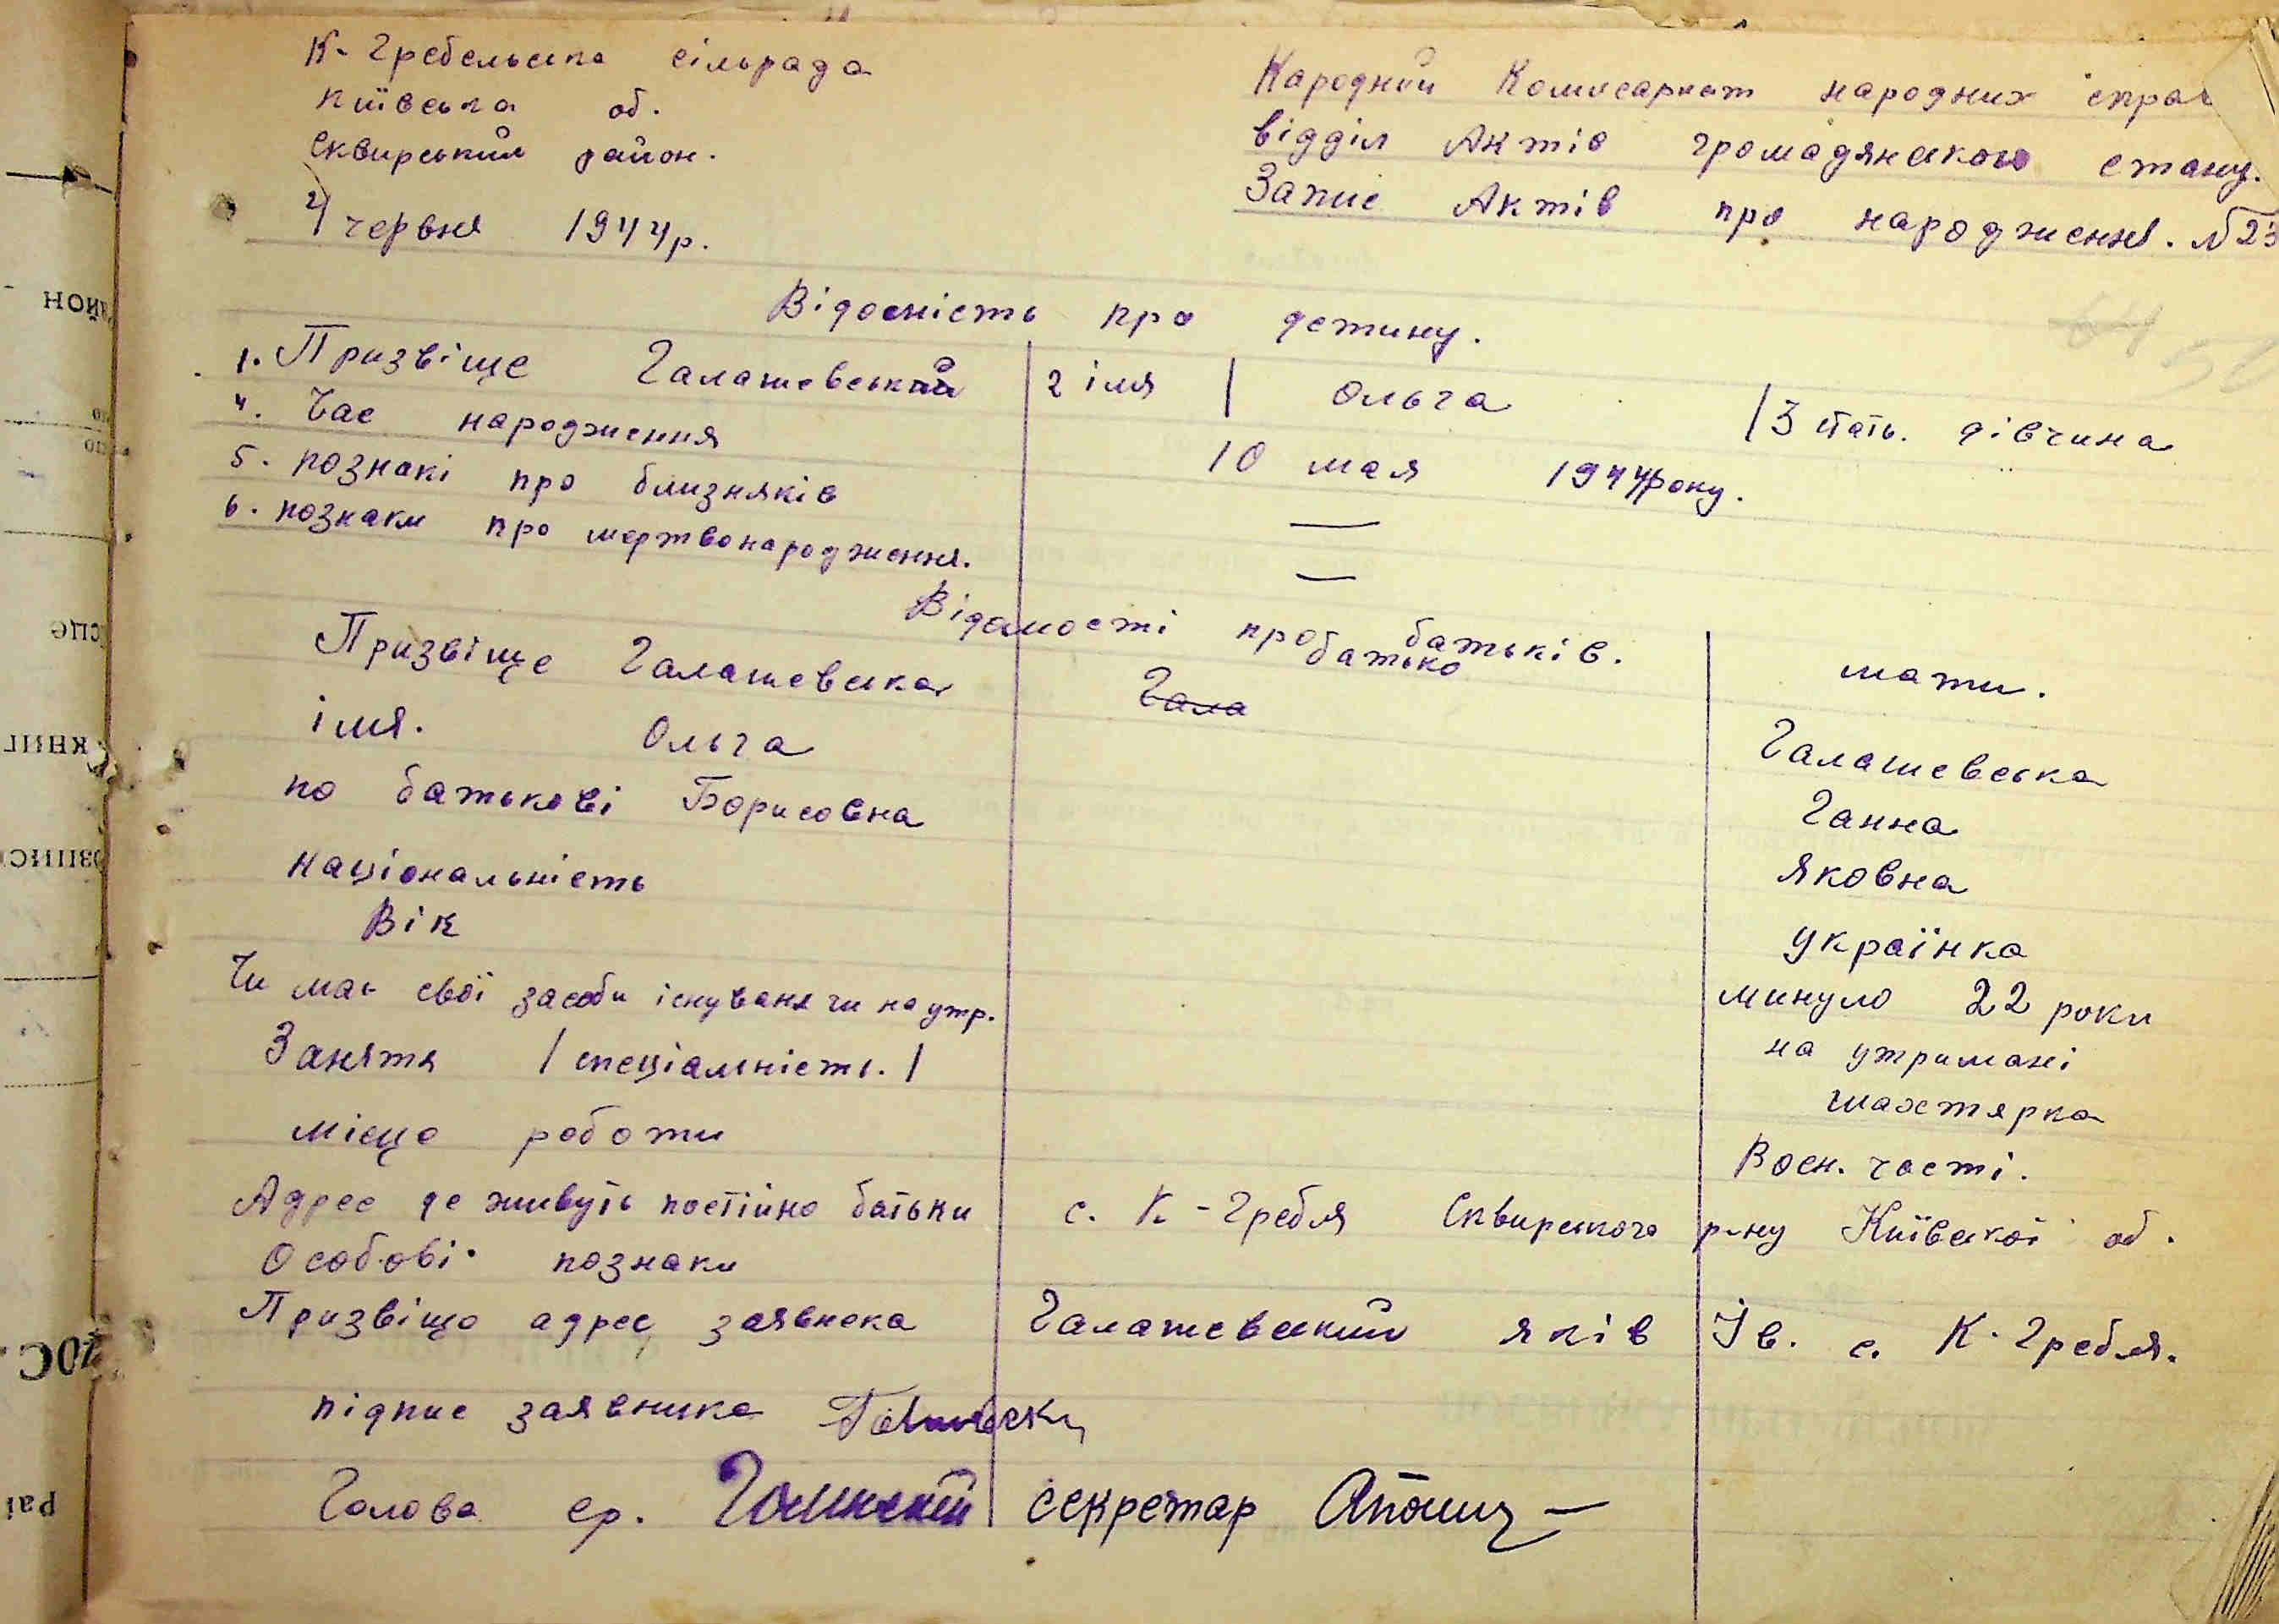 К-Гребельська сільрада
Київська об.
Сквирський район.
21 червня 1944р.
Народний Комисариат народних справ
відділ Актів громадянского стану.
Запис Актів про народження. №23
Відосність про детину.
1. Призвіще Галашевський | 2 імя | Ольга | 3 стать. дівчина
4. Час народження 10 мая 1944 року.
5. познакі про близняків —
6. познаки про мертвонародження. —
Відомості про батьків.
батько мати.
Призвіще Галашевська Гала Галашевська
імя. Ольга Ганна
по батькові Борисовна Яковна
Національність українка
Вік минуло 22 роки
Чи має свої засоби існуваня чи на утр. на утримані
Заняття / спеціальність. / шахтярка
місце роботи Воен. часті.
Адрес де живуть постійно батьки с. К-Гребля Сквирського р-ну Київської об.
Особові познаки
Призвіще адрес заявнека Галашевський Яків Ів. с. К-Гребля.
підпис заявника
Голова ср. секретар